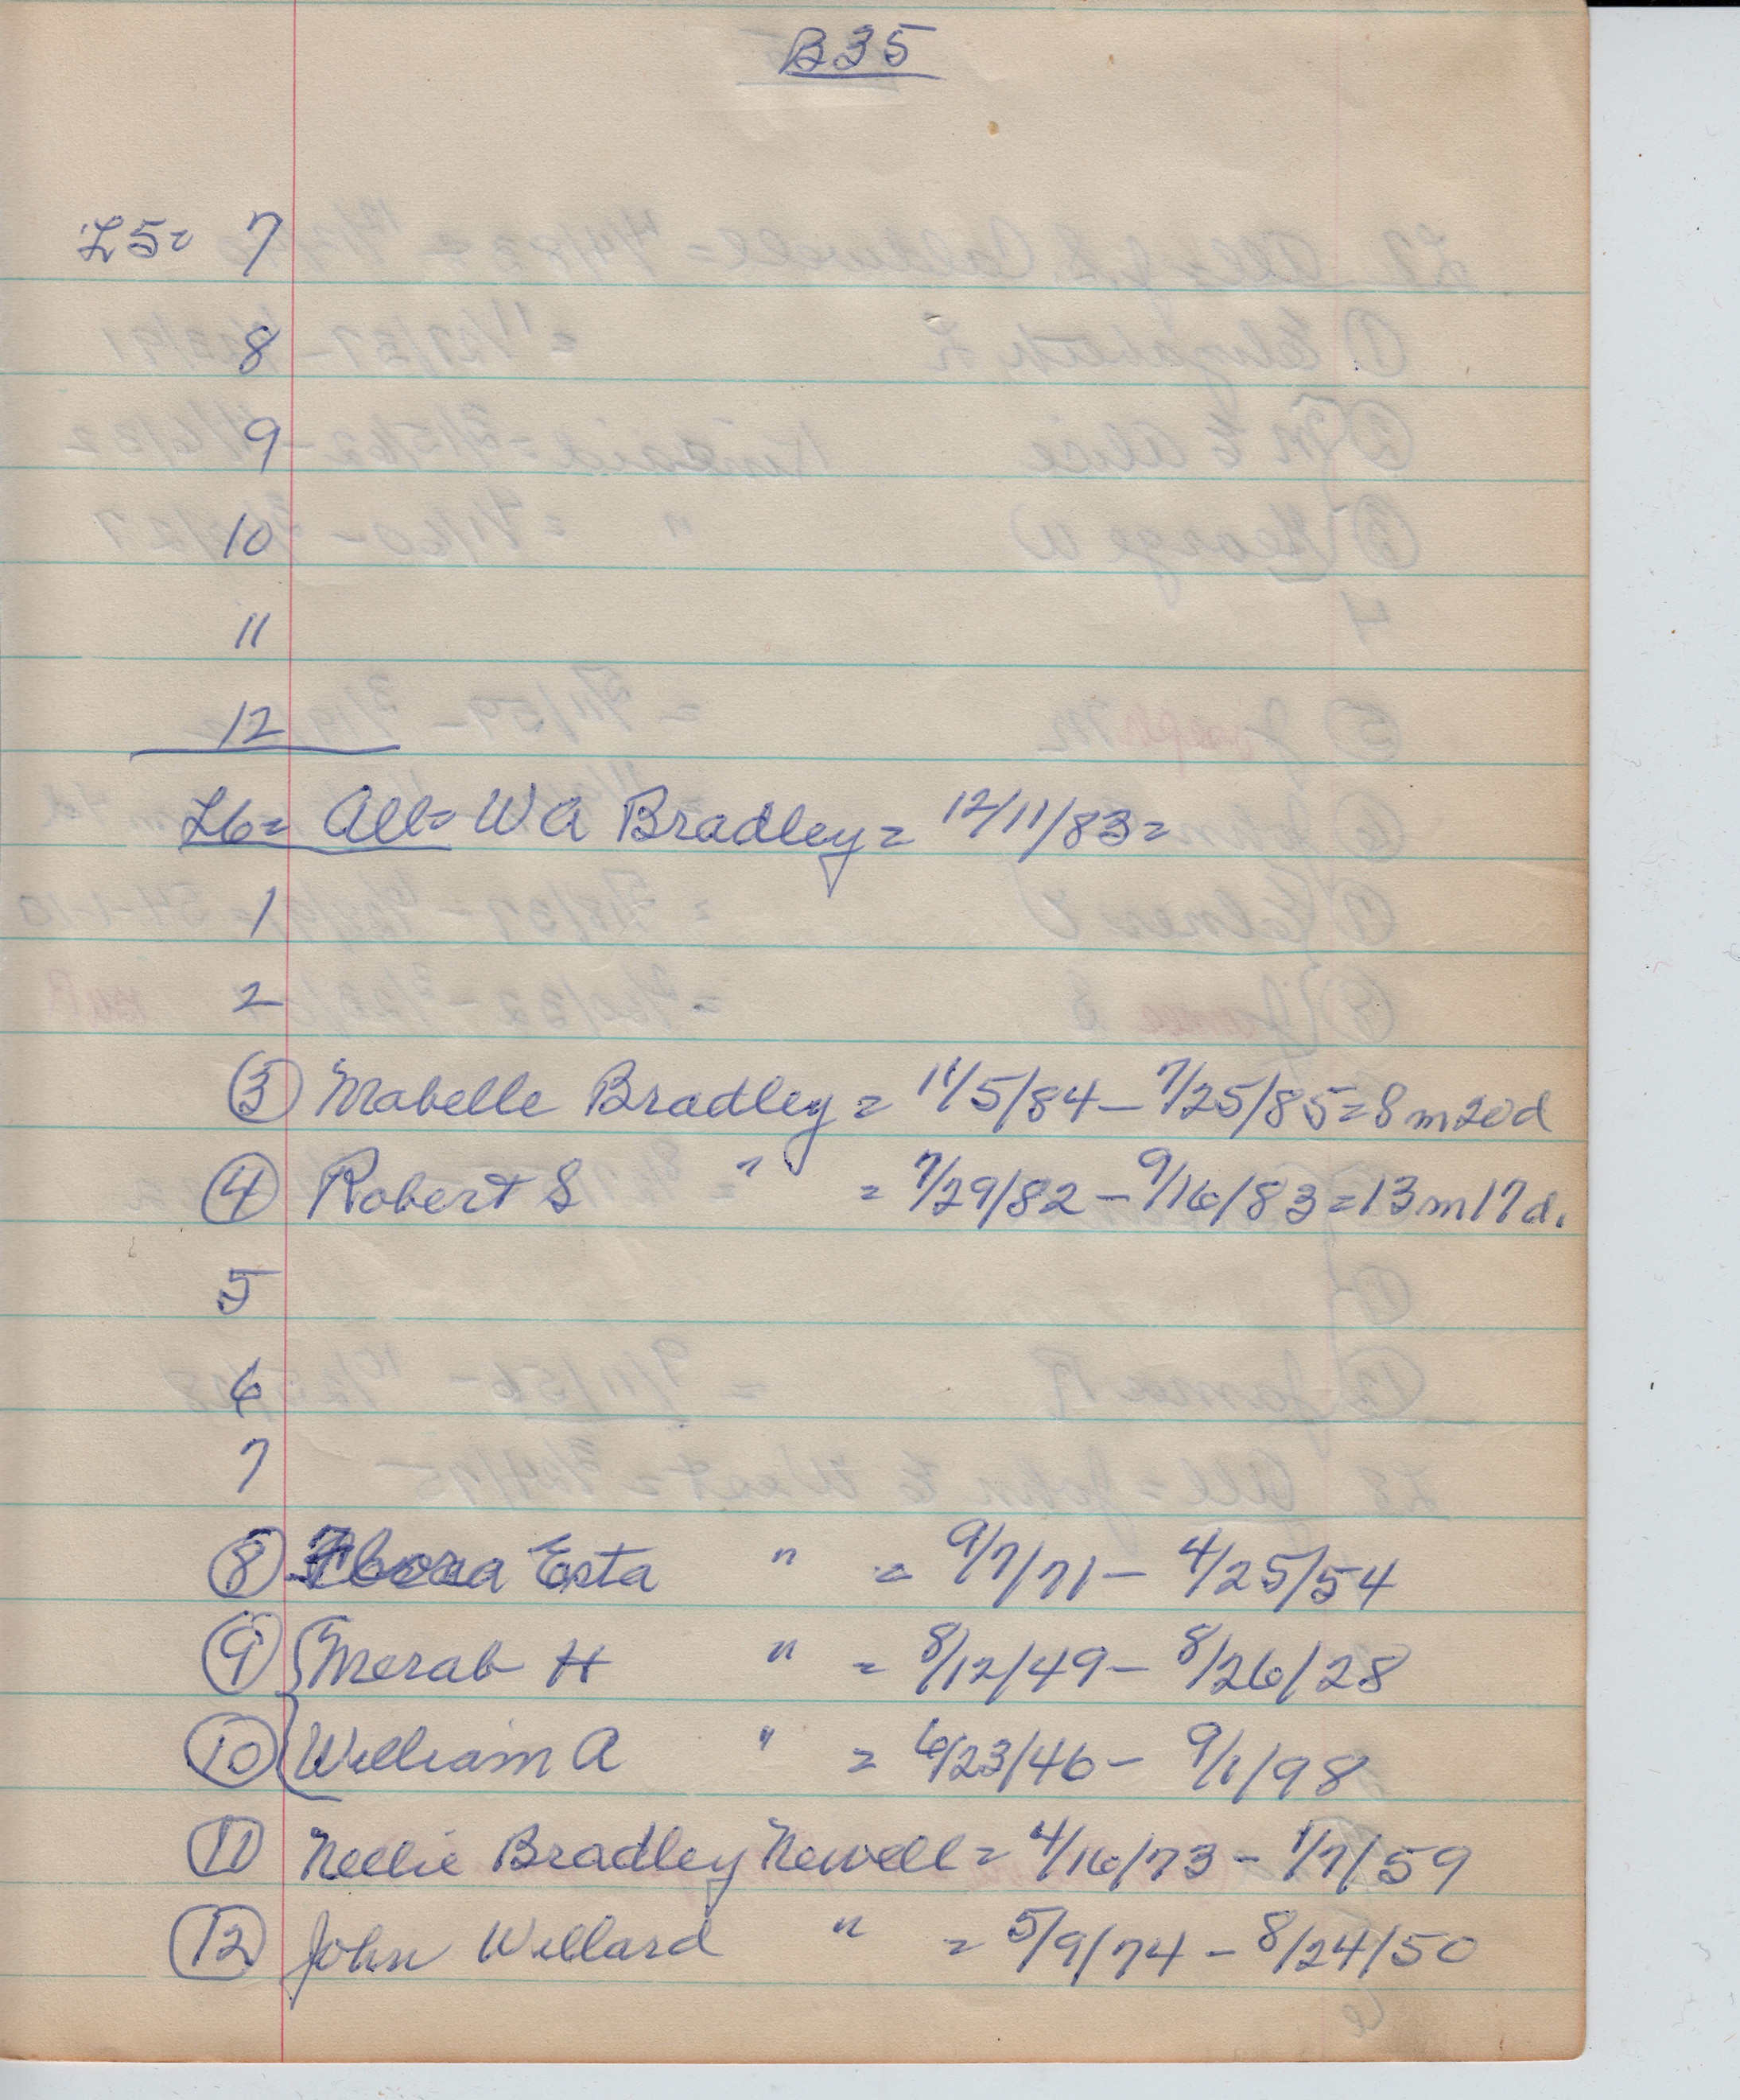 B35
L5= 7
8
9
10
11
12
L6= All= W A Bradley = 12/11/83 =
1
2
3 Mabelle Bradley = 11/5/84 – 7/25/85 = 8m20d
4 Robert S " = 7/29/82 – 9/16/83 = 13m17d.
5
6
7
8 Flora Esta " = 9/7/71 – 4/25/54
9 Merab H " = 8/12/49 – 8/26/28
10 William A " = 6/23/46 – 9/1/98
11 Nellie Bradley Newell = 4/16/73 – 1/7/59
12 John Willard " = 5/9/74 – 8/24/50